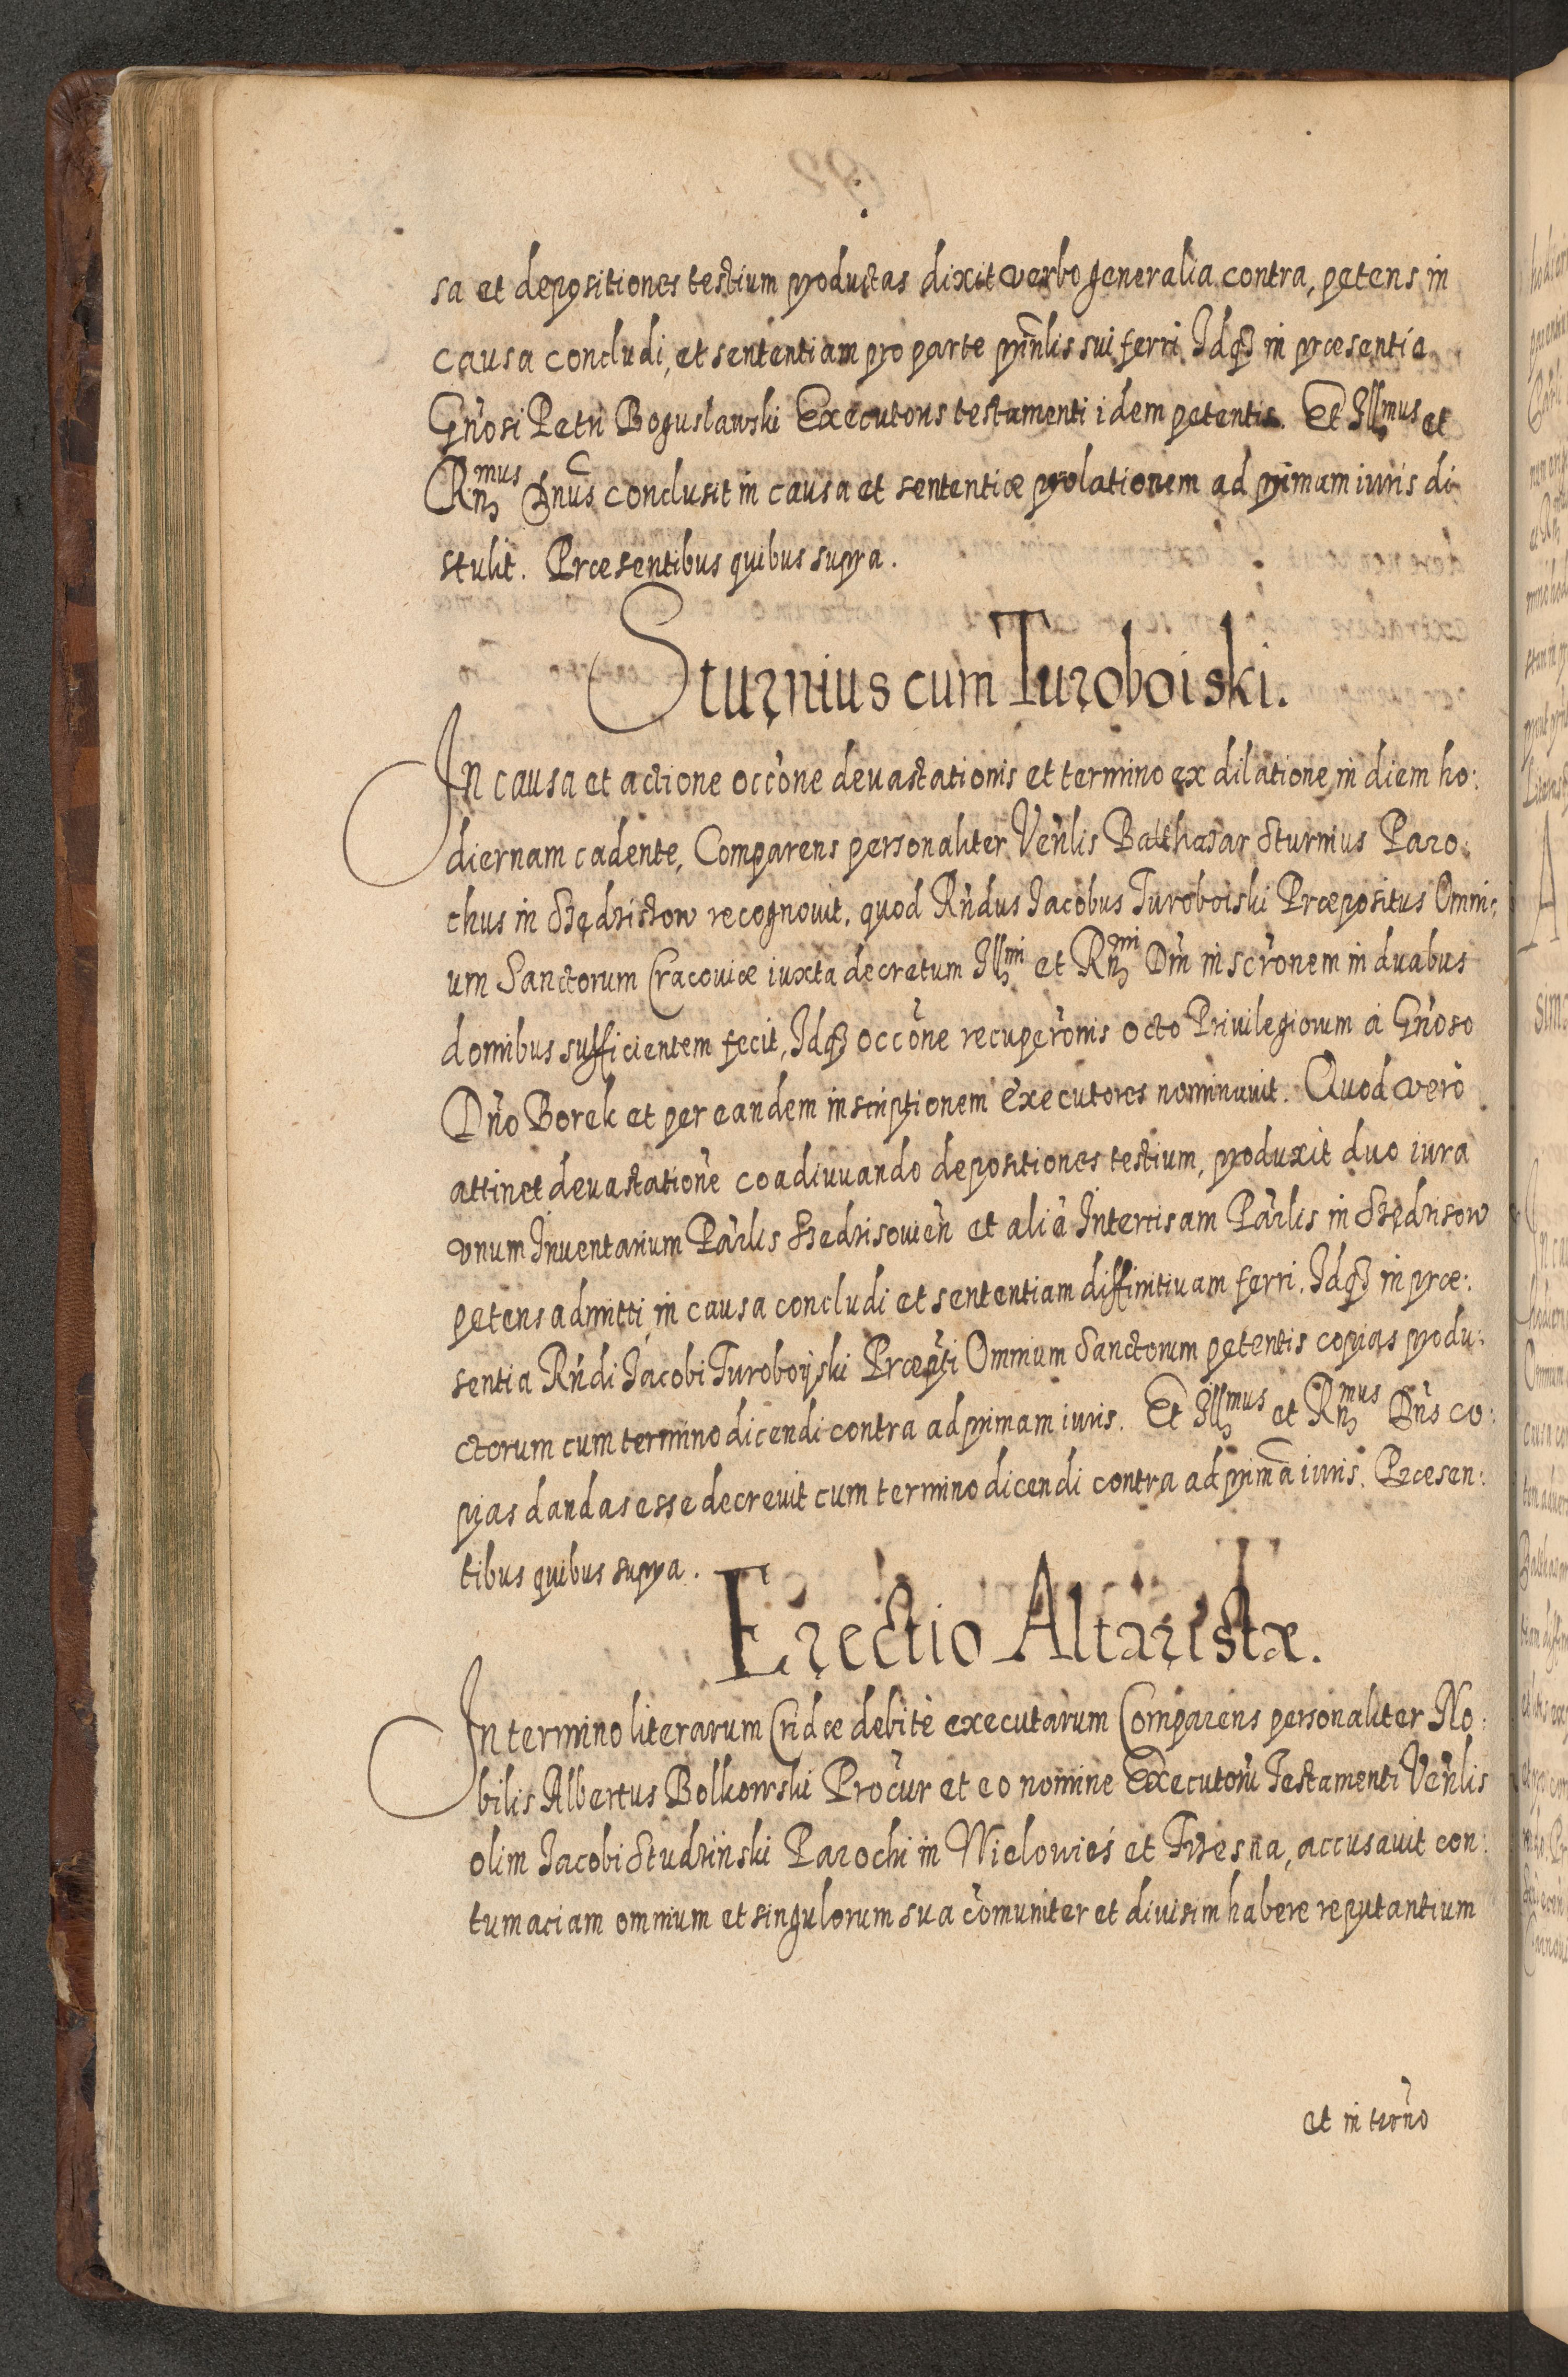 sa et depositiones testium productas dixit verbo generalia contra, petens in
causa concludi, et sententiam pro parte prinlis sui ferri. Idq₃ in præsentia
Gnosi Petri Boguslawski Executoris testamenti idem petentis. Et Ill₃mus et
Rn₃mus Dnus conclusit in causa et sententiæ prolationem ad primam iuris di
stulit. Præsentibus quibus supra.
Sturnius cum Turoboiski.
In causa et actione occone devastationis et termino ex dilatione in diem ho:
diernam cadente, Comparens personaliter Venlis Balthasar Sturnius Paro:
chus in recognovit. quod Rndus Jacobus Turoboiski Præpositus Omni:
um Sanctorum Cracoviæ iuxta decretum Ill₃mi et Rn₃mi Dni inscronem in duabus
domibus sufficientem fecit, Idq₃ occone recuperonis octo Privilegiorum à Gnoso
Dno Borek et per eandem inscriptionem executores nominavit. Quod verò
attinet devastatione coadiuvando depositiones testium, produxit duo iura
vnum Inventarium Parlis et aliâ Intercisam Parlis in
petens admitti, in causa concludi et sententiam diffinitivam ferri. Idq₃ in præ:
sentia Rndi Jacobi Turoboijski Præpti Omnium Sanctorum petentis copias produ:
ctorum cum termino dicendi contra ad primam iuris. Et Ill₃mus et Rn₃mus Dns co:
pias dandas esse decrevit cum termino dicendi contra ad primā iuris. Præsen:
tibus quibus supra.
Erectio Altaristæ.
In termino literarum Cridæ debitè executarum Comparens personaliter No:
bilis Albertus Bolkowski Procur et eo nomine Executorū Testamenti Venlis
olim Jacobi Studzinski Parochi in Wielowieś et Trzesna, accusavit con:
tumaciam omnium et singulorum sua comuniter et divisim habere reputantium
et in terno